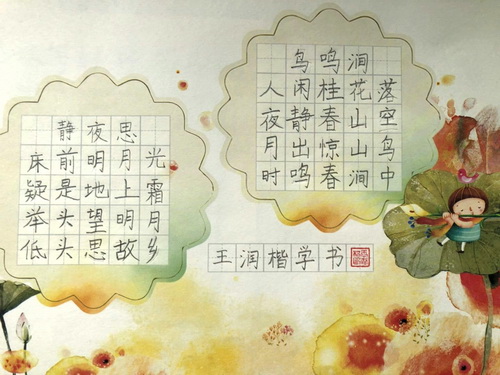 静夜思
床前明月光
疑是地上霜
举头望明月
低头思故乡
鸟鸣涧
人闲桂花落
夜静春山空
月出惊山鸟
时鸣春涧中
王润楷学书